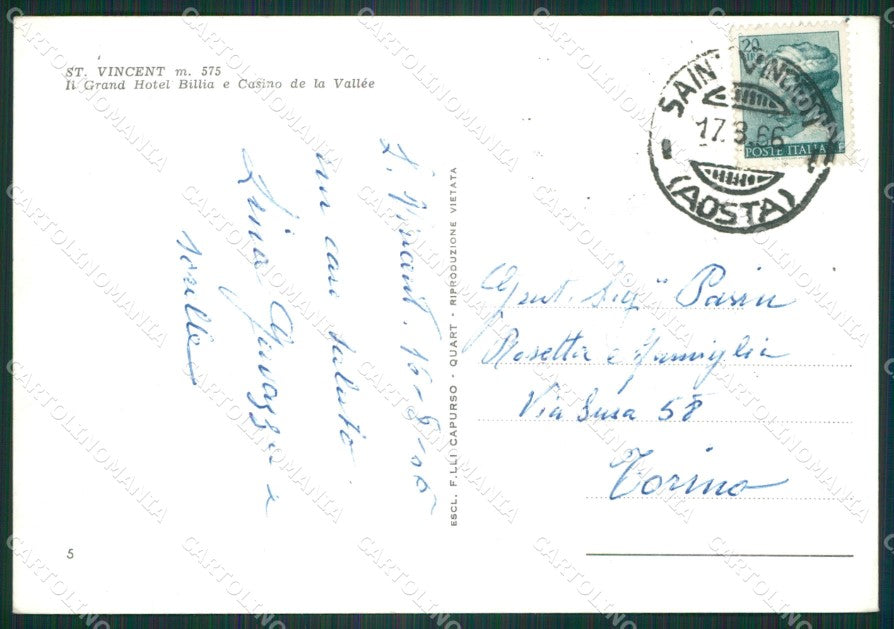 ST. VINCENT m. 575
Il Grand Hotel Billia e Casino de la Vallée
S. Vincent. 16-8-66
un caro saluto.
Lina Gavazza e
sorella
ESCL. F.LLI CAPURSO - QUART - RIPRODUZIONE VIETATA
20
POSTE ITALIANE
SAINT VINCENT
17.8.66
(AOSTA)
Gent. Sig.
Rosetta e famiglia
Via Susa 58
Torino
5
CARTOLINOMANIA